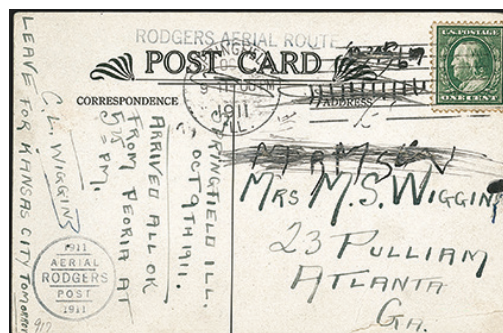 RODGERS AERIAL ROUTE
POST CARD
CORRESPONDENCE
ADDRESS
1911
ILL.
U.S. POSTAGE
ONE CENT
SPRINGFIELD ILL.
OCT 9TH 1911.
ARRIVED ALL OK
FROM PEORIA AT
PM
C. L. WIGGINS
LEAVE FOR KANSAS CITY TOMORROW
1911
AERIAL
RODGERS
POST
1911
MRS M.S. WIGGINS
23 PULLIAM
ATLANTA
GA.